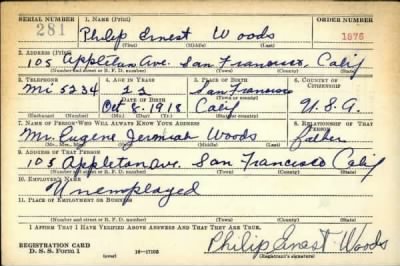 SERIAL NUMBER 1. NAME (Print) ORDER NUMBER
281 Philip Ernest Woods 1876
(First) (Middle) (Last)
2. ADDRESS (Print)
105 Appleton Ave. San Francisco, Calif
(Number and street or R. F. D. number) (Town) (County) (State)
3. TELEPHONE 4. AGE IN YEARS 5. PLACE OF BIRTH 6. COUNTRY OF CITIZENSHIP
Mi 5234 22 San Francisco
DATE OF BIRTH (Town or county)
Oct 8, 1918 Calif U.S.A.
(Exchange) (Number) (Mo.) (Day) (Yr.) (State or country)
7. NAME OF PERSON WHO WILL ALWAYS KNOW YOUR ADDRESS 8. RELATIONSHIP OF THAT PERSON
Mr. Eugene Jermiah Woods father
(Mr., Mrs., Miss) (First) (Middle) (Last)
9. ADDRESS OF THAT PERSON
105 Appleton Ave. San Francisco Calif
(Number and street or R. F. D. number) (Town) (County) (State)
10. EMPLOYER'S NAME
Unemployed
11. PLACE OF EMPLOYMENT OR BUSINESS
(Number and street or R. F. D. number) (Town) (County) (State)
I AFFIRM THAT I HAVE VERIFIED ABOVE ANSWERS AND THAT THEY ARE TRUE.
REGISTRATION CARD
D. S. S. Form 1 (over) 16—17105 Philip Ernest Woods
(Registrant's signature)